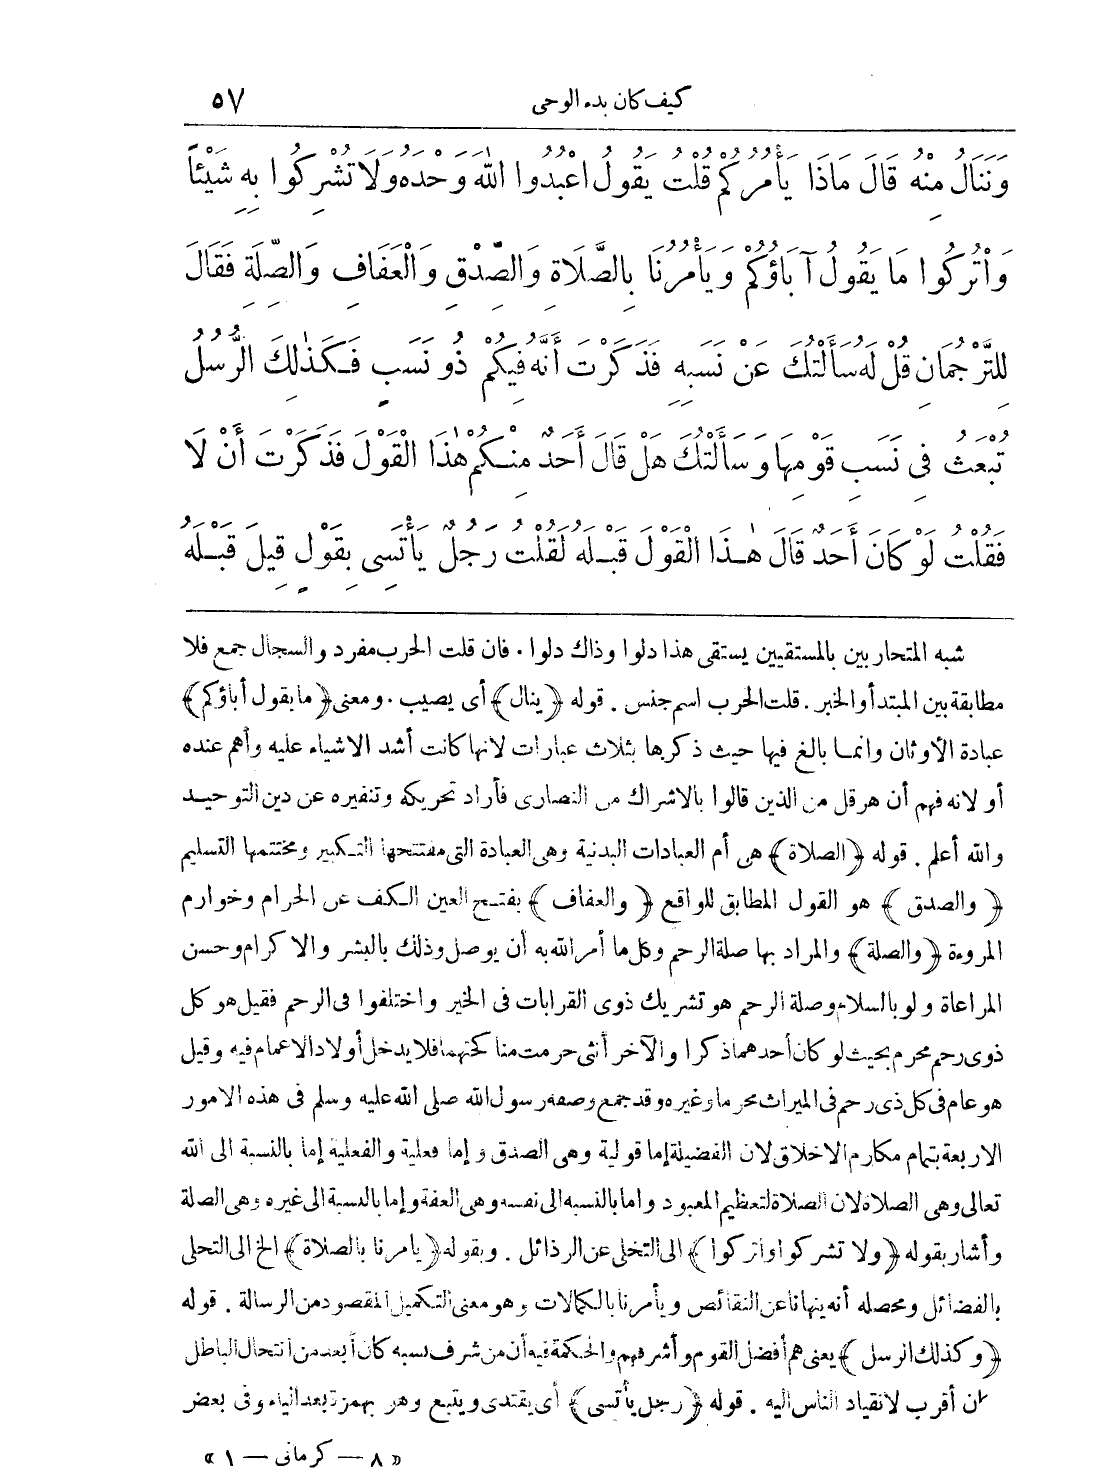 كيف كان بدء الوحى ٥٧
وَنَنَالُ مِنْهُ قَالَ مَاذَا يَأْمُرُكُمْ قُلْتُ يَقُولُ اعْبُدُوا اللهَ وَحْدَهُ وَلَا تُشْرِكُوا بِهِ شَيْئًا
وَاتْرُكُوا مَا يَقُولُ آبَاؤُكُمْ وَيَأْمُرُنَا بِالصَّلَاةِ وَالصِّدْقِ وَالْعَفَافِ وَالصِّلَةِ فَقَالَ
لِلتَّرْجُمَانِ قُلْ لَهُ سَأَلْتُكَ عَنْ نَسَبِهِ فَذَكَرْتَ أَنَّهُ فِيكُمْ ذُو نَسَبٍ فَكَذٰلِكَ الرُّسُلُ
تُبْعَثُ فِى نَسَبِ قَوْمِهَا وَسَأَلْتُكَ هَلْ قَالَ أَحَدٌ مِنْكُمْ هٰذَا الْقَوْلَ فَذَكَرْتَ أَنْ لَا
فَقُلْتُ لَوْ كَانَ أَحَدٌ قَالَ هٰذَا الْقَوْلَ قَبْلَهُ لَقُلْتُ رَجُلٌ يَأْتَسِى بِقَوْلٍ قِيلَ قَبْلَهُ
شبه المتحاربين بالمستقيين يستقى هذا دلوا وذاك دلوا . فان قلت الحرب مفرد والسجال جمع فلا
مطابقة بين المبتدأ والخبر . قلت الحرب اسم جنس . قوله ﴿ينال﴾ أى يصيب . ومعنى ﴿مايقول أباؤكم﴾
عبادة الأوثان وانما بالغ فيها حيث ذكرها بثلاث عبارات لانها كانت أشد الاشياء عليه وأهم عنده
أو لانه فهم أن هرقل من الذين قالوا بالاشراك من النصارى فأراد تحريكه وتنفيره عن دين التوحيد
والله أعلم . قوله ﴿الصلاة﴾ هى أم العبادات البدنية وهى العبادة التى مفتتحها التكبير ومختتمها التسليم
﴿والصدق﴾ هو القول المطابق للواقع ﴿والعفاف﴾ بفتح العين الكف عن الحرام وخوارم
المروءة ﴿والصلة﴾ والمراد بها صلة الرحم وكل ما أمر الله به أن يوصل وذلك بالبشر والاكرام وحسن
المراعاة ولو بالسلام وصلة الرحم هو تشريك ذوى القرابات فى الخير واختلفوا فى الرحم فقيل هو كل
ذوى رحم محرم بحيث لو كان أحدهما ذكرا والآخر أنثى حرمت مناكحتهما فلا يدخل أولاد الاعمام فيه وقيل
هو عام فى كل ذى رحم فى الميراث محرما وغيره وقد جمع وصفه رسول الله صلى الله عليه وسلم فى هذه الامور
الاربعة بتمام مكارم الاخلاق لان الفضيلة إما قولية وهى الصدق وإما فعلية والفعلية إما بالنسبة الى الله
تعالى وهى الصلاة لان الصلاة لتعظيم المعبود واما بالنسبه الى نفسه وهى العفة وإما بالنسبة الى غيره وهى الصلة
وأشار بقوله ﴿ولا تشركوا واتركوا﴾ الى التخلى عن الرذائل . وبقوله ﴿يامرنا بالصلاة﴾ الخ الى التحلى
بالفضائل ومحصله أنه ينهانا عن النقائص ويأمرنا بالكمالات وهو معنى التكميل المقصود من الرسالة . قوله
﴿وكذلك الرسل﴾ يعنى هم أفضل القوم وأشرفهم والحكمة فيه أن من شرف نسبه كان أبعد من انتحال الباطل
كان أقرب لانقياد الناس اليه . قوله ﴿رجل يأتسى﴾ أى يقتدى ويتبع وهر بهمزة بعد الياء وفى بعض
« ٨ — كرمانى — ١ »